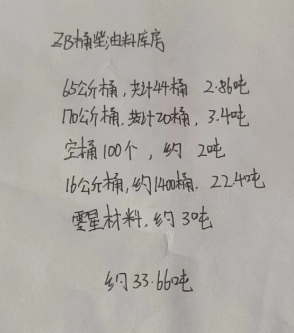 ZB桶柴油料库房
65公斤桶,共计44桶 2.86吨
170公斤桶,共计20桶, 3.4吨
空桶100个, 约 2吨
16公斤桶,约1400桶. 22.4吨
零星材料,约3吨
约33.66吨